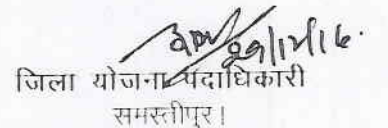 29/12/16.
जिला योजना पदाधिकारी
समस्तीपुर।